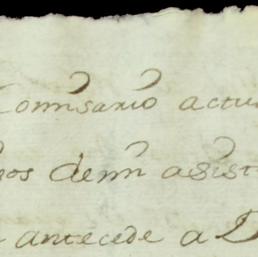 Comisario actu
os demi asist
antecede a D